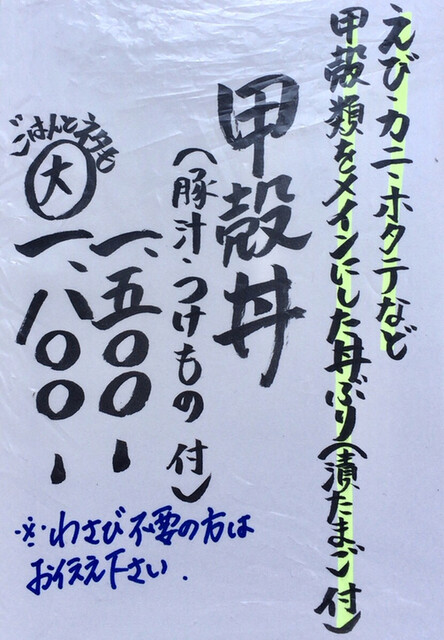 えび・カニ・ホタテなど
甲殻類をメインにした丼ぶり(漬たまご付)
甲殻丼
(豚汁・つけもの付)
一、五〇〇-
ごはんとネタも
大 一、八〇〇-
※わさび不要の方は
お伝え下さい.